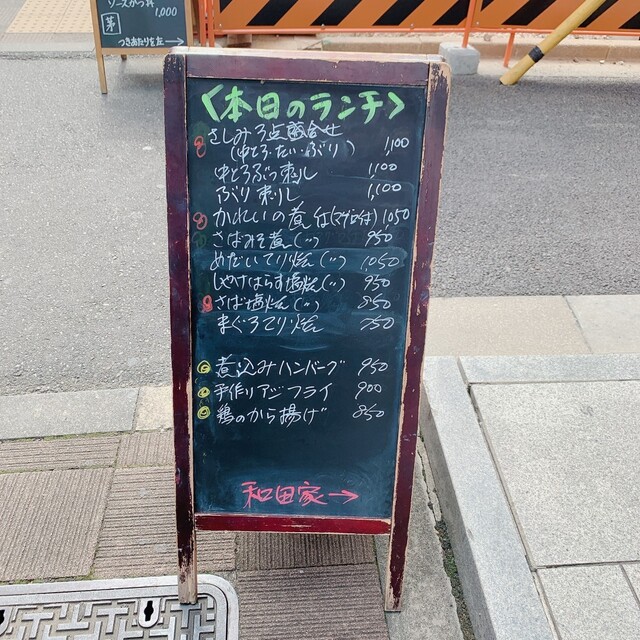 ソースかつ丼
1,000
茅
つきあたりを左→
<本日のランチ>
さしみ3点盛合せ
(中とろ・たい・ぶり) 1,100
中とろぶつ刺し 1,100
ぶり刺し 1,100
かれいの煮付(マグロ付) 1,050
さばみそ煮(〃) 950
めだいてり焼(〃) 1,050
しゃけはらす塩焼(〃) 950
さば塩焼(〃) 850
まぐろてり焼 750
煮込みハンバーグ 950
手作りアジフライ 900
鶏のから揚げ 850
和田家→